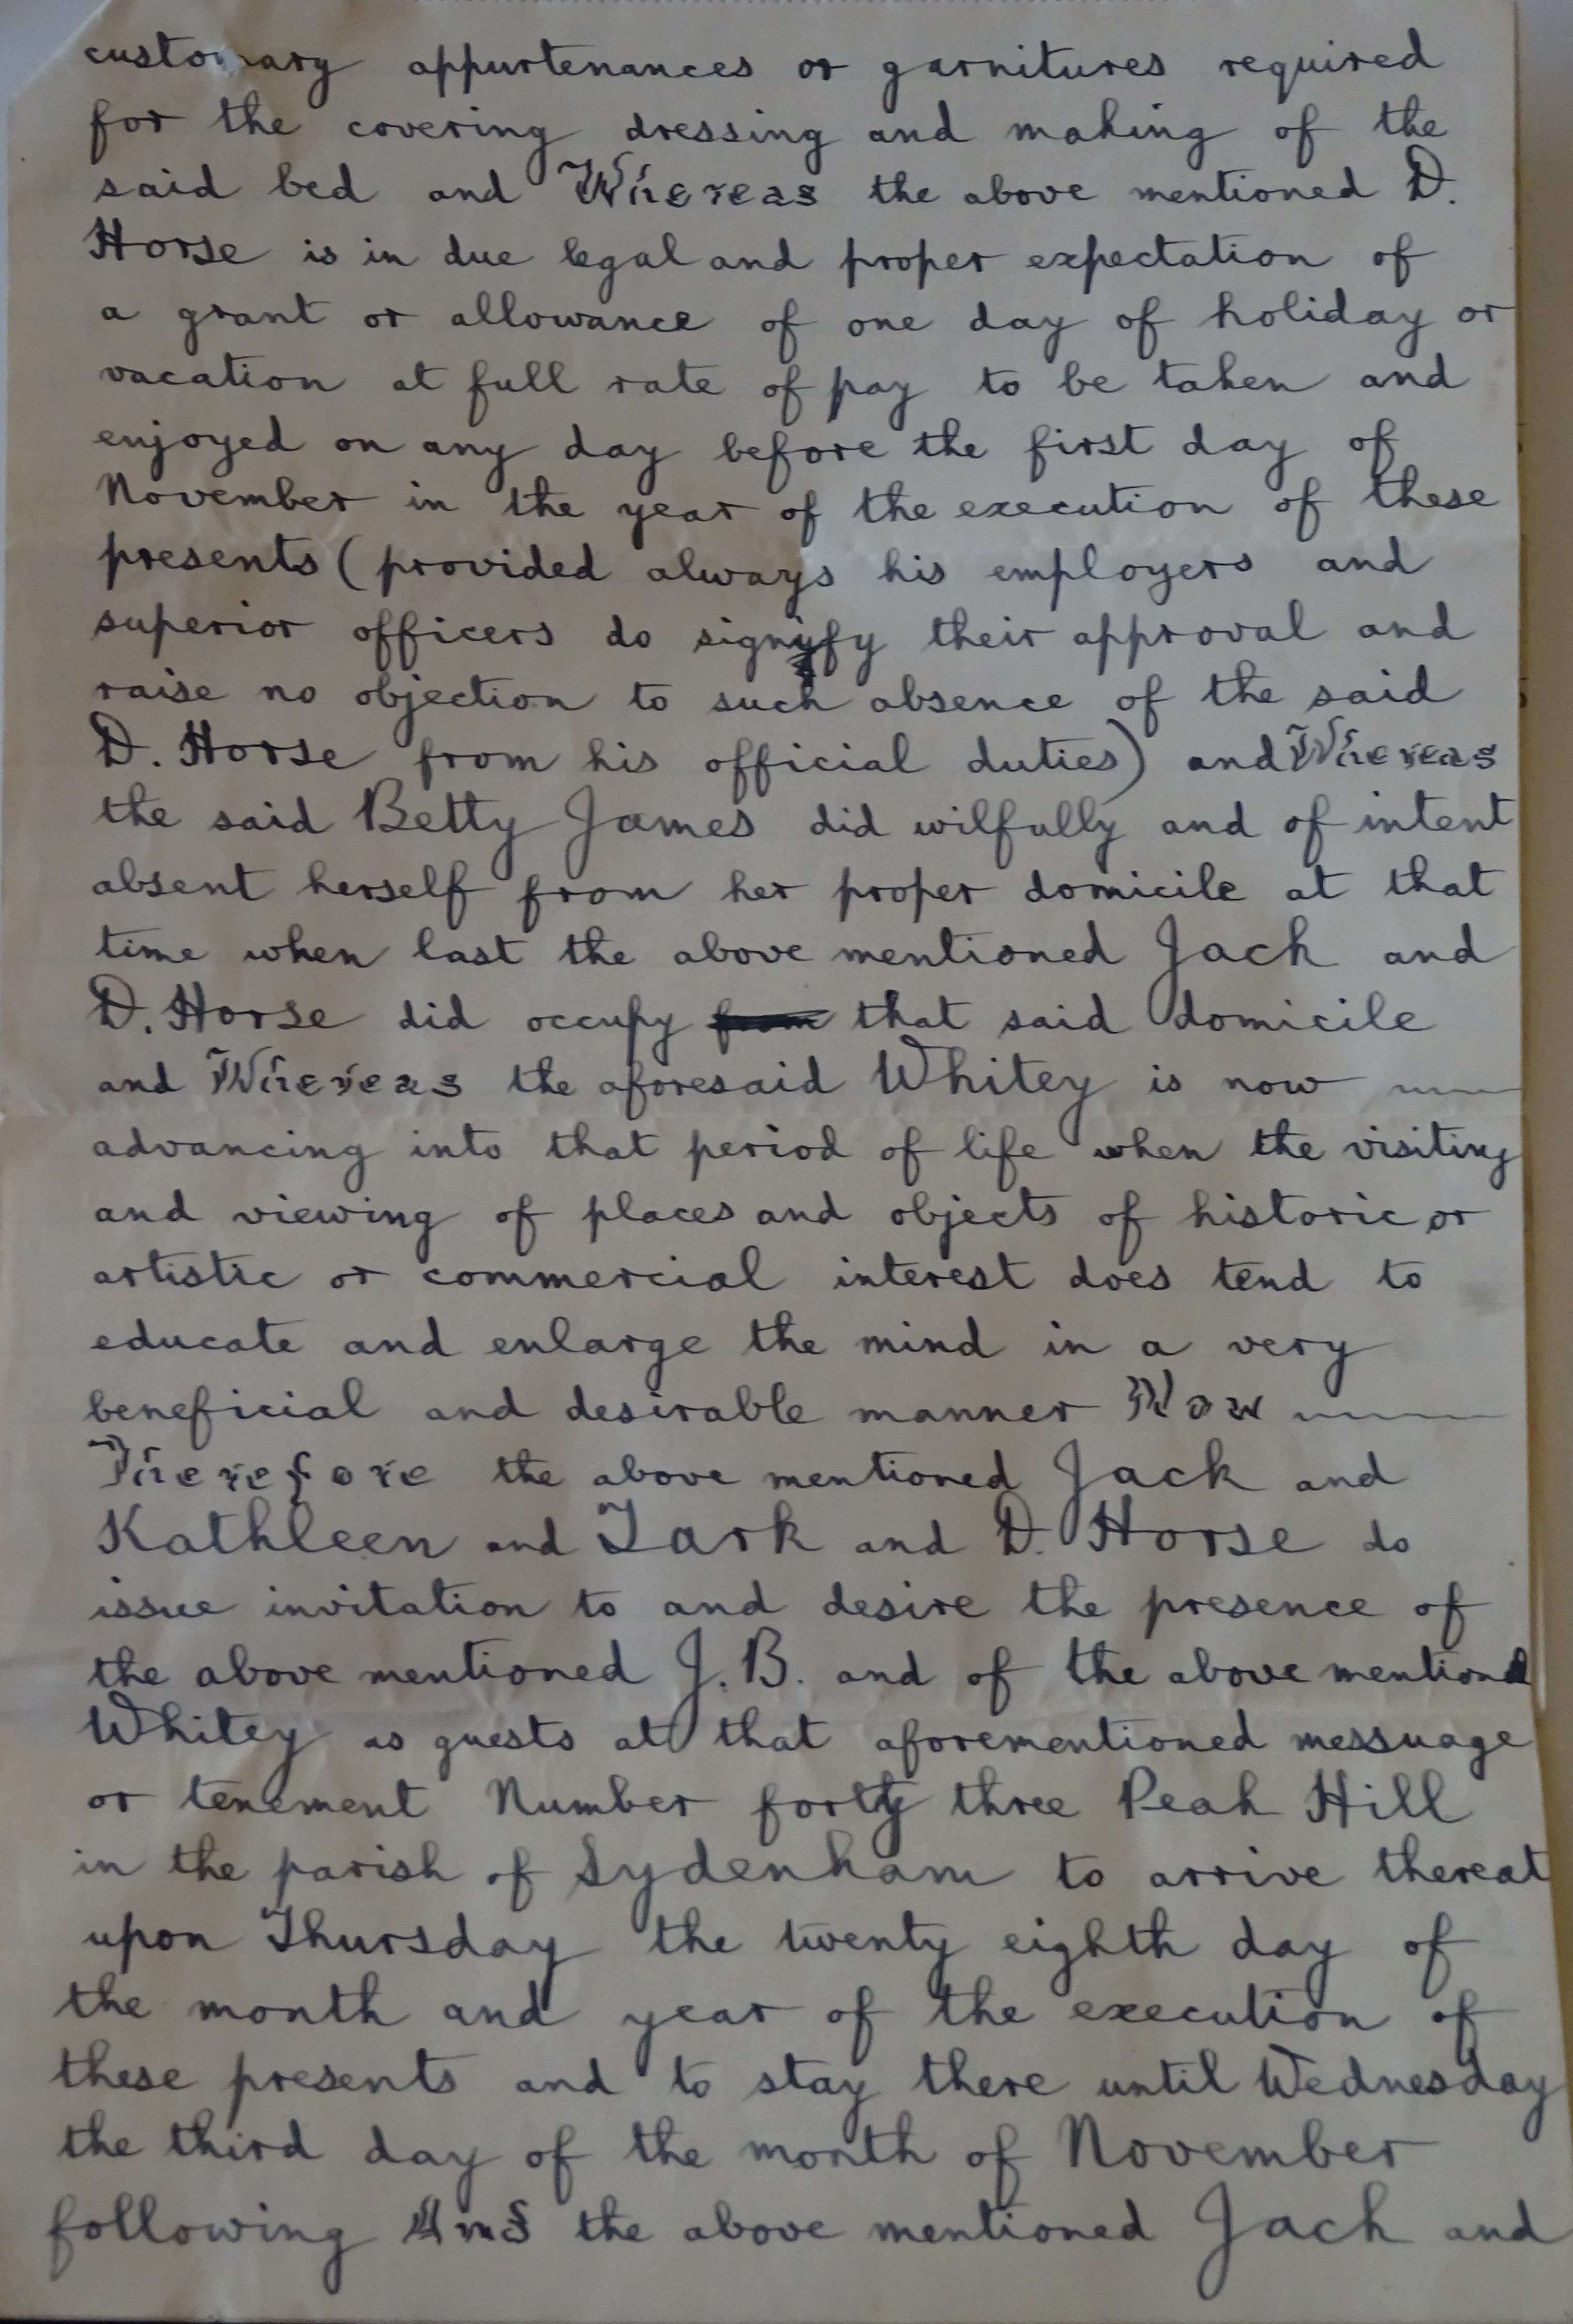 customary appurtenances or garnitures required
for the covering dressing and making of the
said bed and Whereas the above mentioned D.
Horse is in due legal and proper expectation of
a grant or allowance of one day of holiday or
vacation at full rate of pay to be taken and
enjoyed on any day before the first day of
November in the year of the execution of these
presents (provided always his employers and
superior officers do signify their approval and
raise no objection to such absence of the said
D. Horse from his official duties) and Whereas
the said Betty James did wilfully and of intent
absent herself from her proper domicile at that
time when last the above mentioned Jack and
D. Horse did occupy from that said domicile
and Whereas the aforesaid Whitey is now
advancing into that period of life when the visiting
and viewing of places and objects of historic or
artistic or commercial interest does tend to
educate and enlarge the mind in a very
beneficial and desirable manner Now
Therefore the above mentioned Jack and
Kathleen and Tark and D. Horse do
issue invitation to and desire the presence of
the above mentioned J. B. and of the above mentioned
Whitey as guests at that aforementioned messuage
or tenement Number forty three Peak Hill
in the parish of Sydenham to arrive thereat
upon Thursday the twenty eighth day of
the month and year of the execution of
these presents and to stay there until Wednesday
the third day of the month of November
following And the above mentioned Jack and